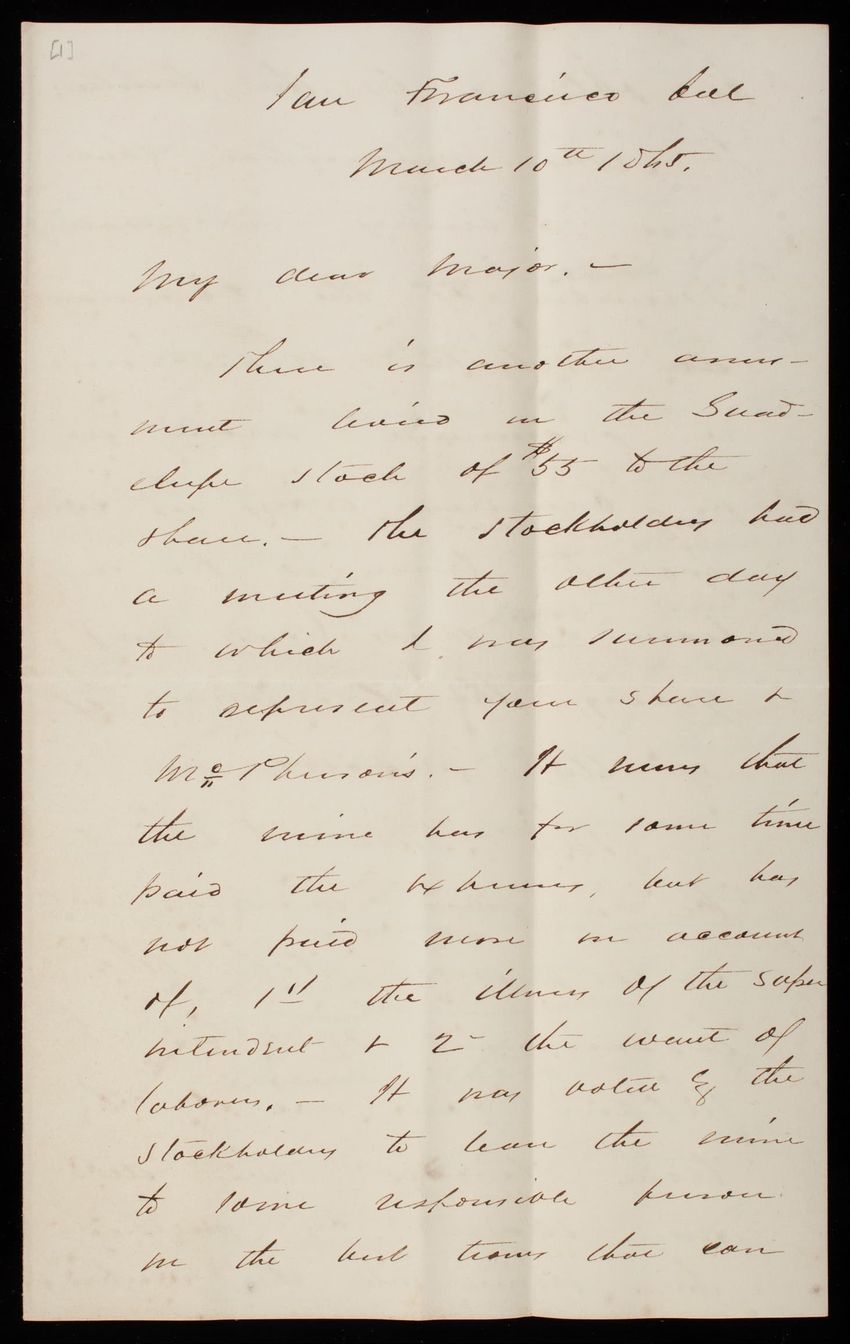 [1]
San Francisco Cal
March 10th 1865.
My dear Major. —
There is another assess-
ment levied on the Guad-
elupe stock of $55 to the
share. — The stockholders had
a meeting the other day
to which I was summoned
to represent your share &
McPherson's. — It seems that
the mine has for some time
paid the expenses, but has
not paid more on account
of, 1st the illness of the super
intendent & 2 the want of
laborers. — It was voted by the
stockholders to lease the mine
to some responsible person
on the best terms that can